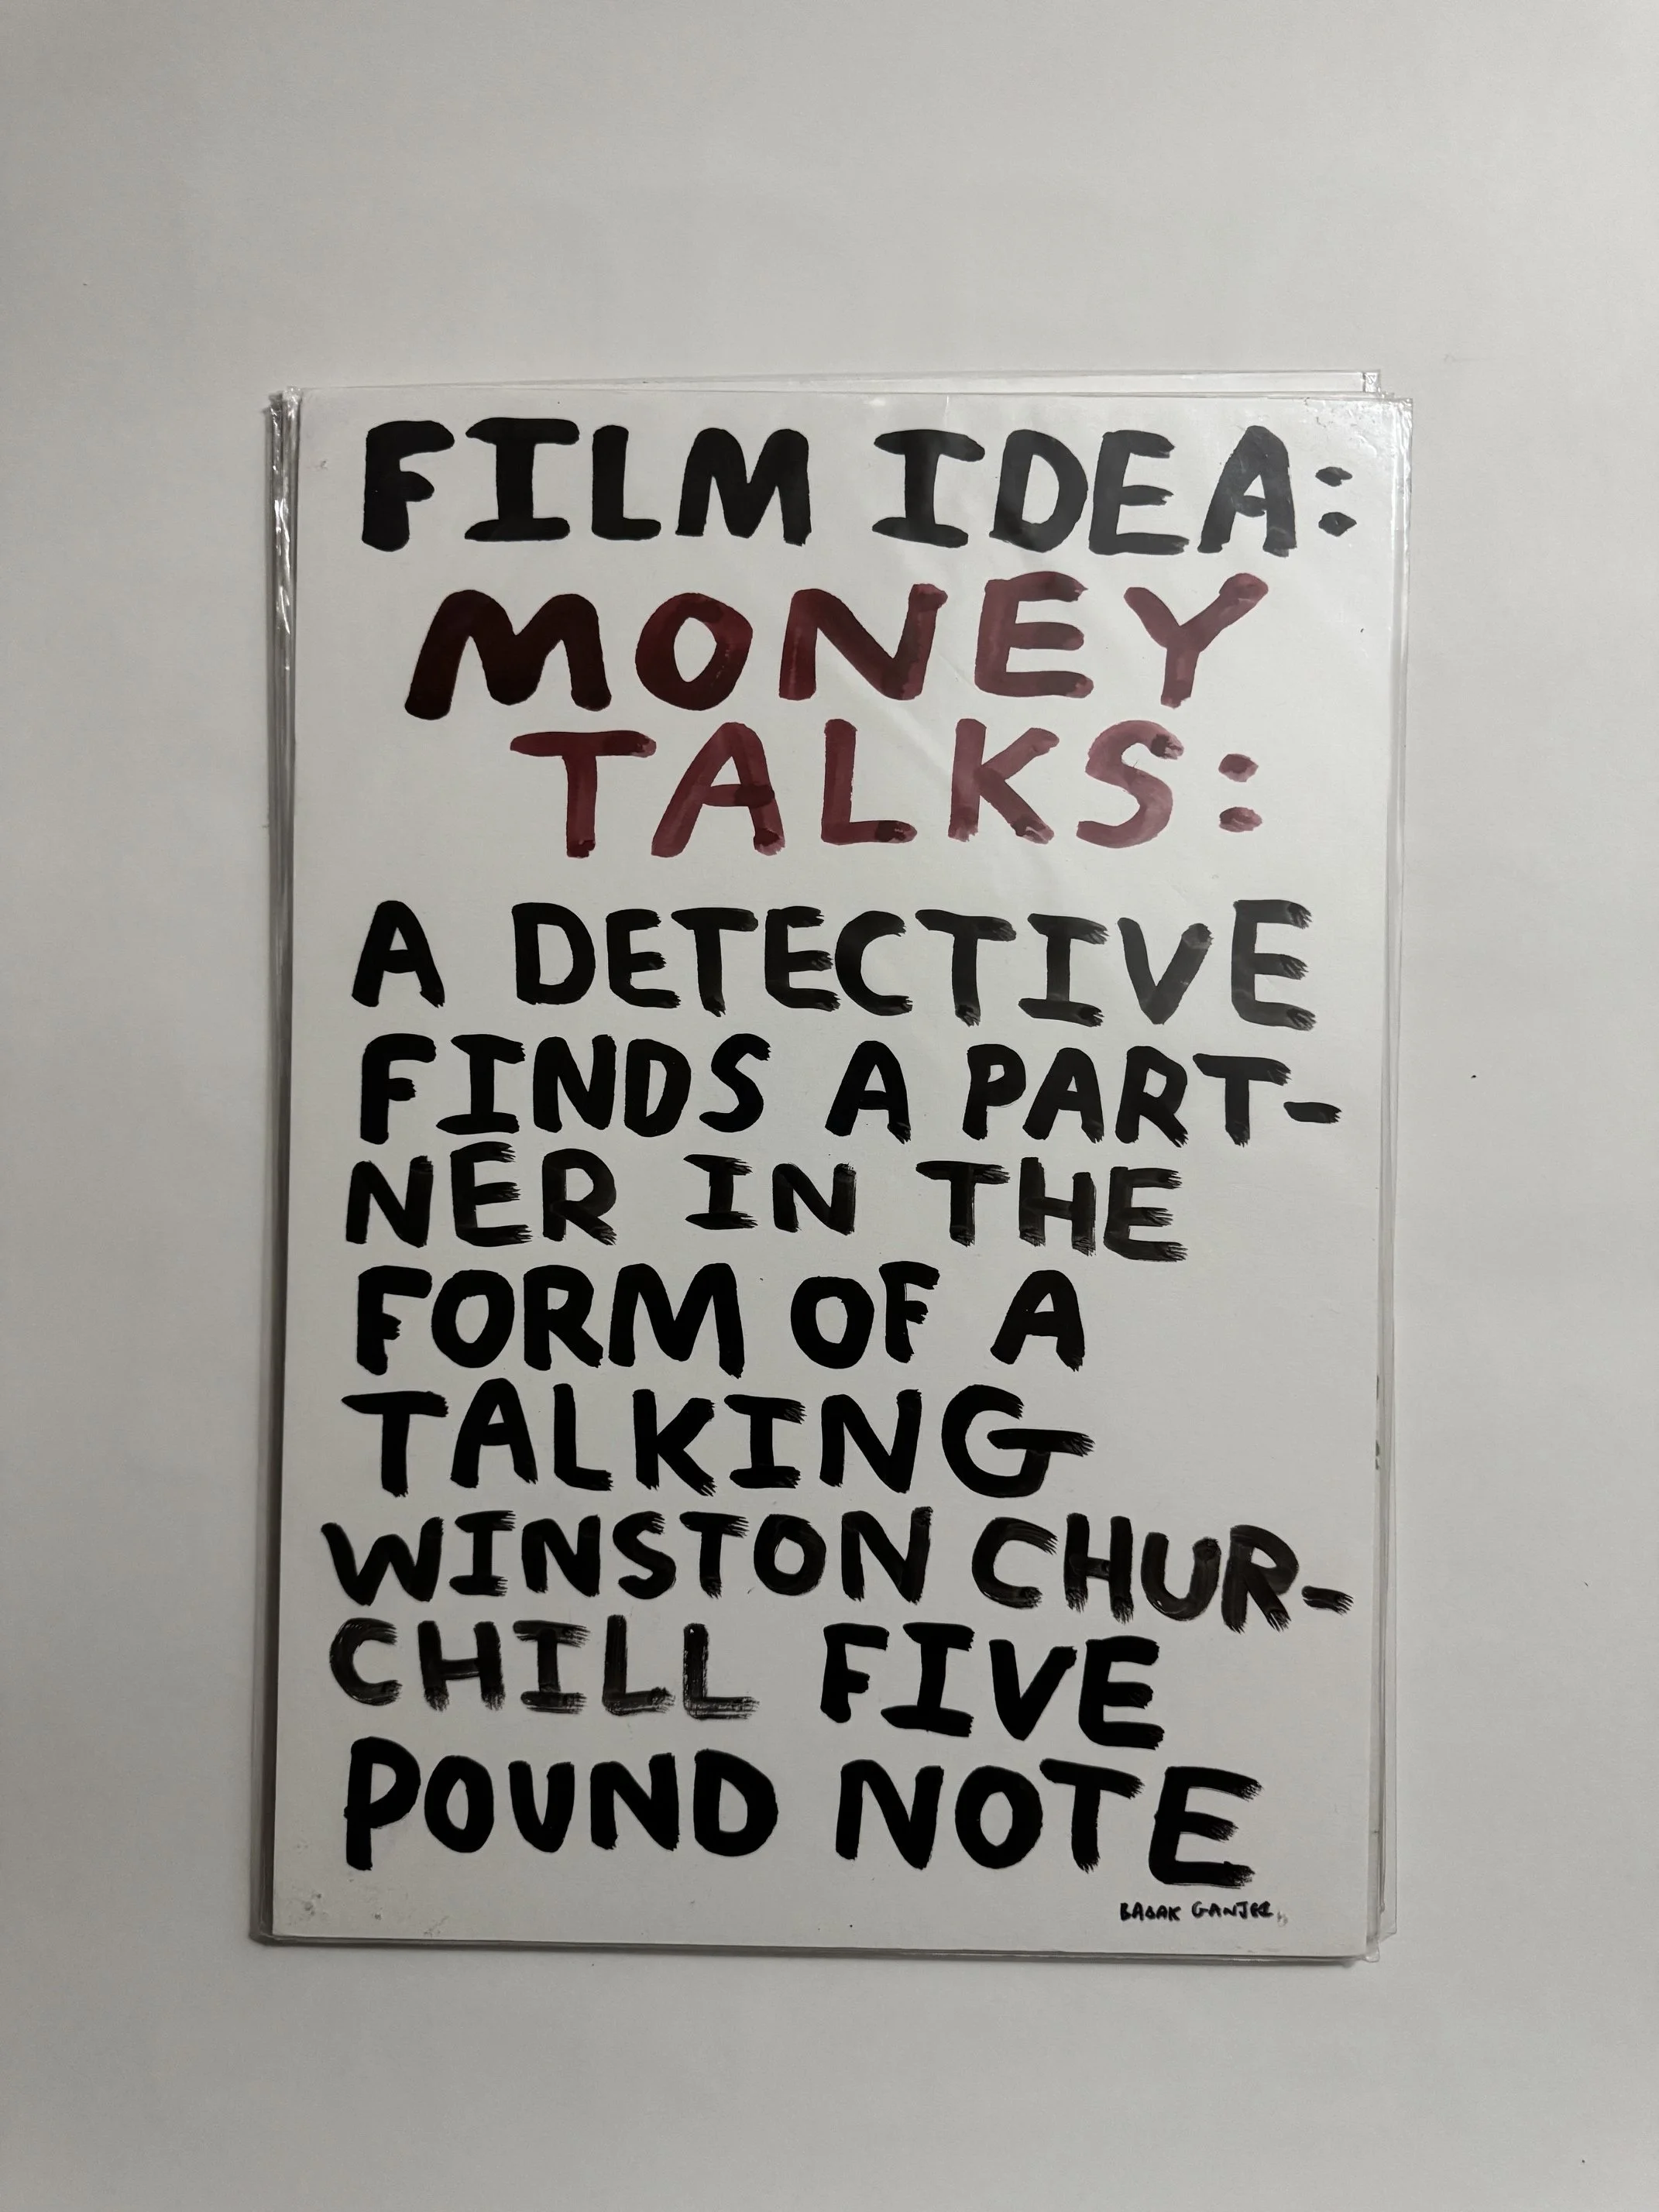 FILM IDEA:
MONEY
TALKS:
A DETECTIVE
FINDS A PART-
NER IN THE
FORM OF A
TALKING
WINSTON CHUR-
CHILL FIVE
POUND NOTE
BABAK GANJEI